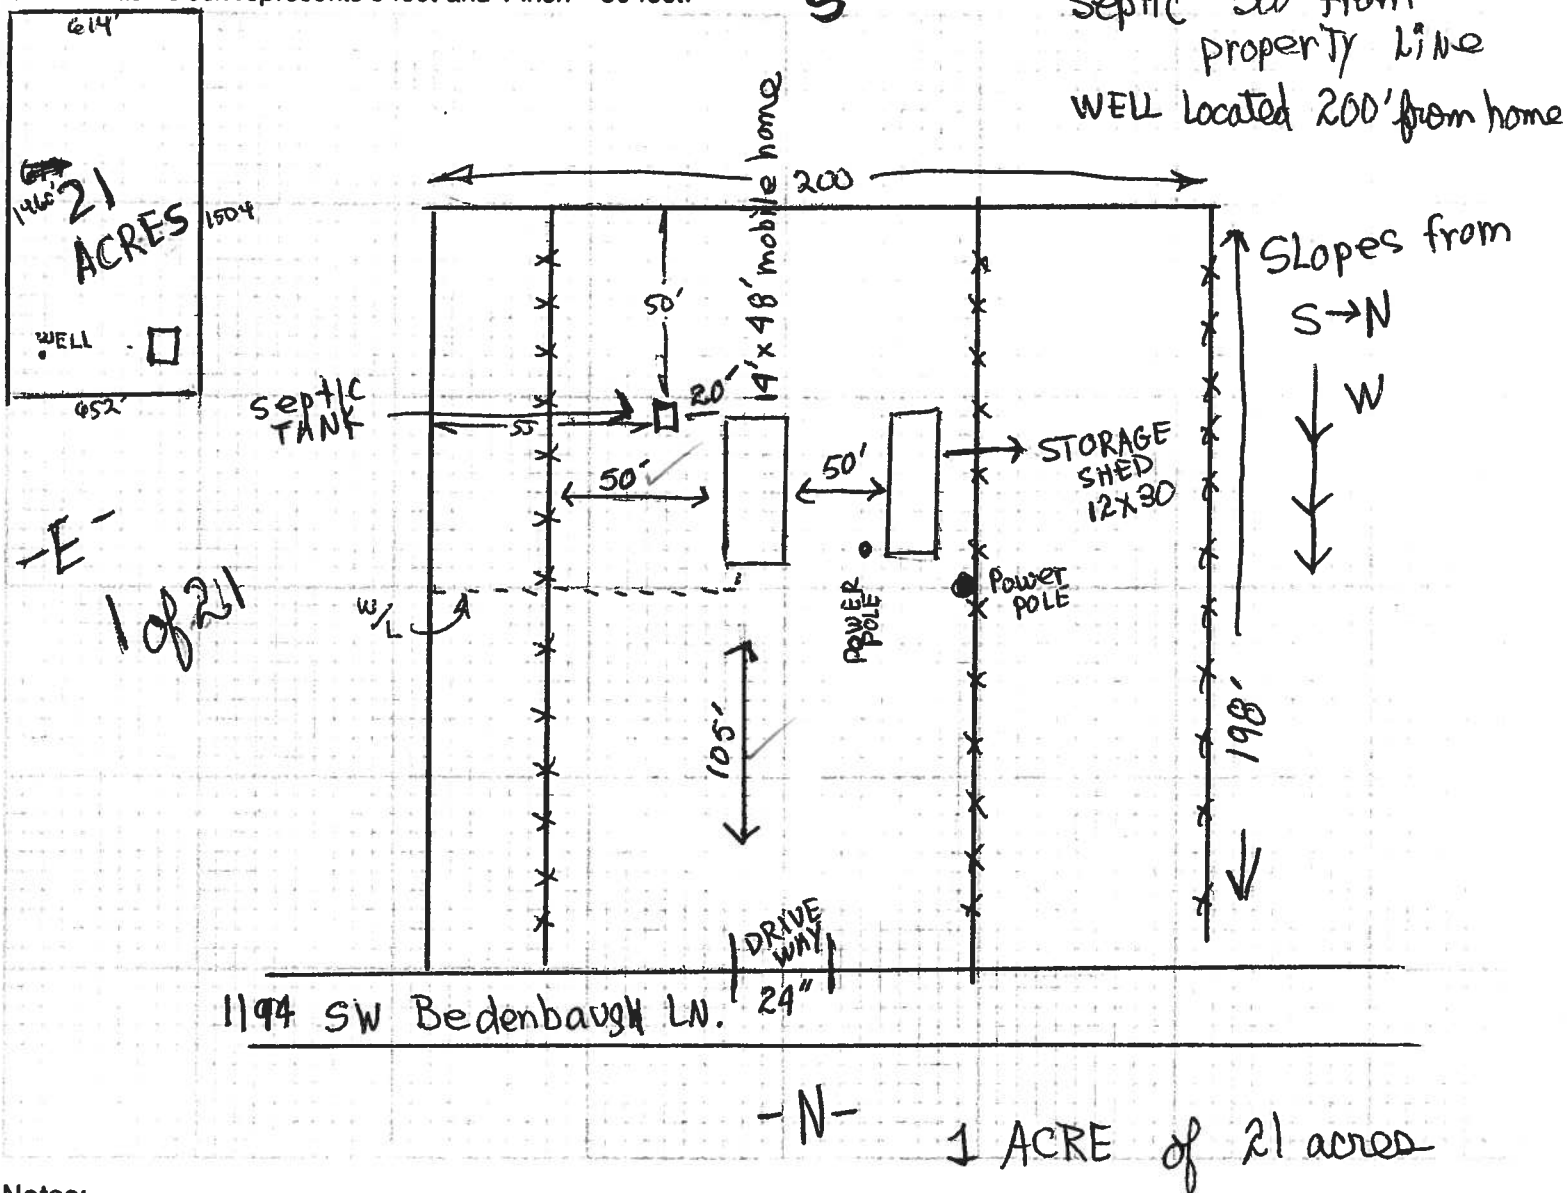 614'
1460'
21
ACRES
1504
WELL
652'
S
property LiNe
WELL Located 200' from home
200
14' x 48' mobile home
SLopes from
S → N
W
50'
20'
septic
TANK
55
50'
50'
STORAGE
SHED
12X30
-E-
1 of 21
W/L
POWER
POLE
Power
POLE
105'
198'
DRIVE
WAY
24"
1194 SW Bedenbaugh LN.
-N-
1 ACRE of 21 acres